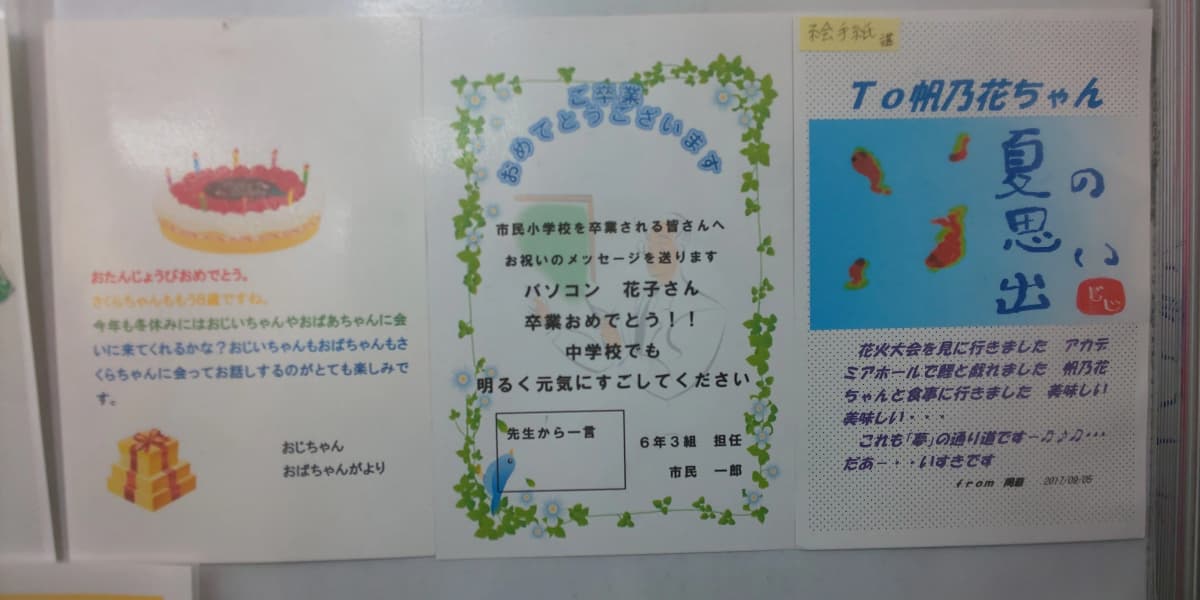 おたんじょうびおめでとう。
さくらちゃんももう8歳ですね。
今年も冬休みにはおじいちゃんやおばあちゃんに会
いに来てくれるかな？おじいちゃんもおばちゃんもさ
くらちゃんに会ってお話しするのがとても楽しみで
す。
おじちゃん
おばちゃんがより
ご卒業
おめでとうございます
市民小学校を卒業される皆さんへ
お祝いのメッセージを送ります
パソコン 花子さん
卒業おめでとう！！
中学校でも
明るく元気にすごしてください
先生から一言
6年3組 担任
市民 一郎
絵手紙
To帆乃花ちゃん
夏の
思い
出
じじ
花火大会を見に行きました アカデ
ミアホールで鯉と戯れました 帆乃花
ちゃんと食事に行きました 美味しい
美味しい・・・
これも「夢」の通り道ですー♫♪♫・・・
だあー・・・いすきです
from
2017/09/05